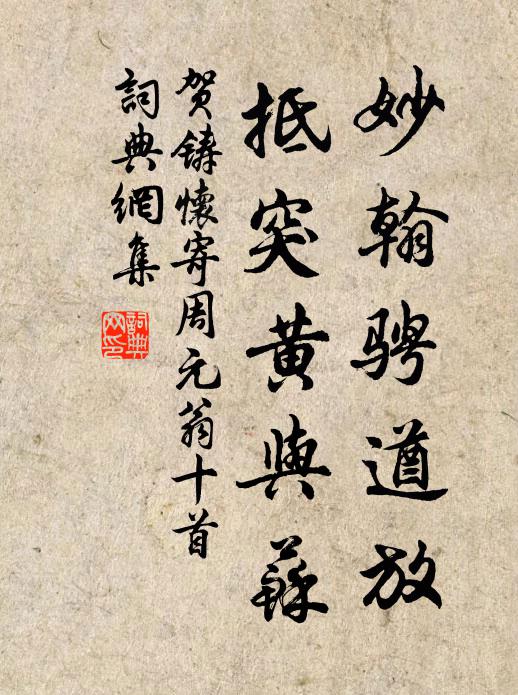 妙翰骋遒放
抵突黄與蘇
贺鑄懷寄周元翁十首
詞典網集
詞典网印